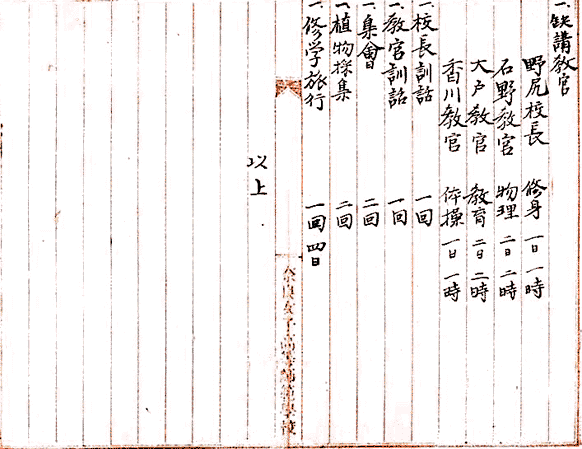 一、缺講教官
野尻校長 修身 一日 一時
石野教官 物理 二日 二時
大戸教官 教育 二日 二時
香川教官 体操 一日 一時
一、校長訓話 一回
一、教官訓話 一回
一、集會 二回
一、植物採集 二回
一、修学旅行 一回 四日
奈良女子高等師範學校
以上